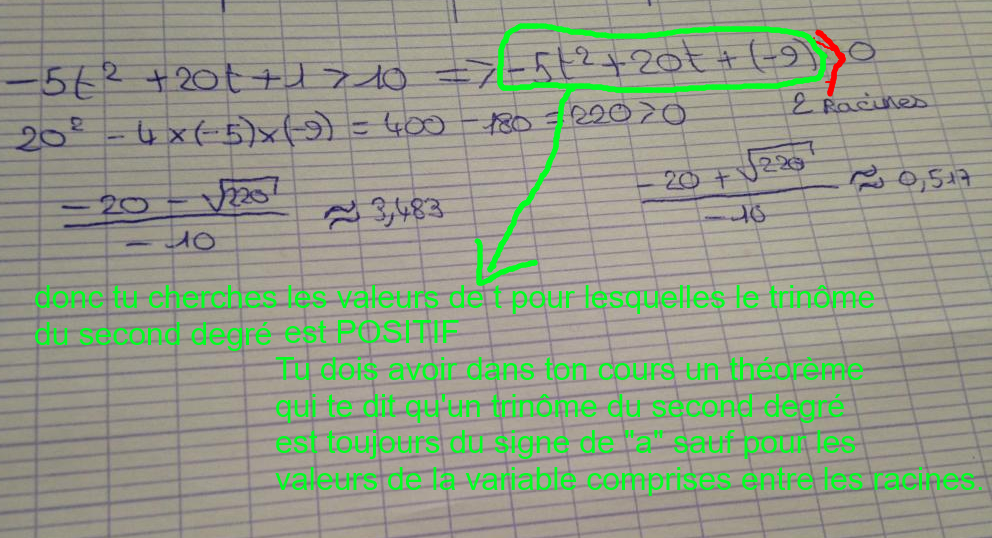 -5t² + 20t + 1 > 10 => -5t² + 20t + (-9) > 0
2 Racines
20² - 4 × (-5) × (-9) = 400 - 180 = 220 > 0
(-20 - √220) / -10 ≈ 3,483
(-20 + √220) / -10 ≈ 0,517
donc tu cherches les valeurs de t pour lesquelles le trinôme
du second degré est POSITIF
Tu dois avoir dans ton cours un théorème
qui te dit qu'un trinôme du second degré
est toujours du signe de "a" sauf pour les
valeurs de la variable comprises entre les racines